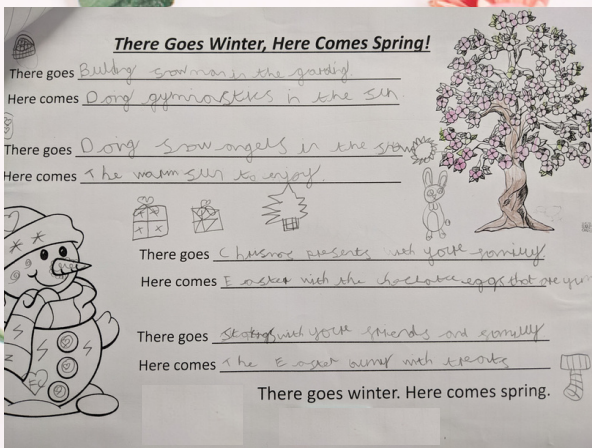 There Goes Winter, Here Comes Spring!
There goes Buildig snowman in the gardig.
Here comes Doing gymnastics in the sun.
There goes Doing snow angels in the snow
Here comes The warm sun to enjoy.
There goes Chrismas presents with youre familly
Here comes Easter with the choclate eggs that are yum
There goes with youre friends and familly
Here comes The Easter bunny with treats
There goes winter. Here comes spring.